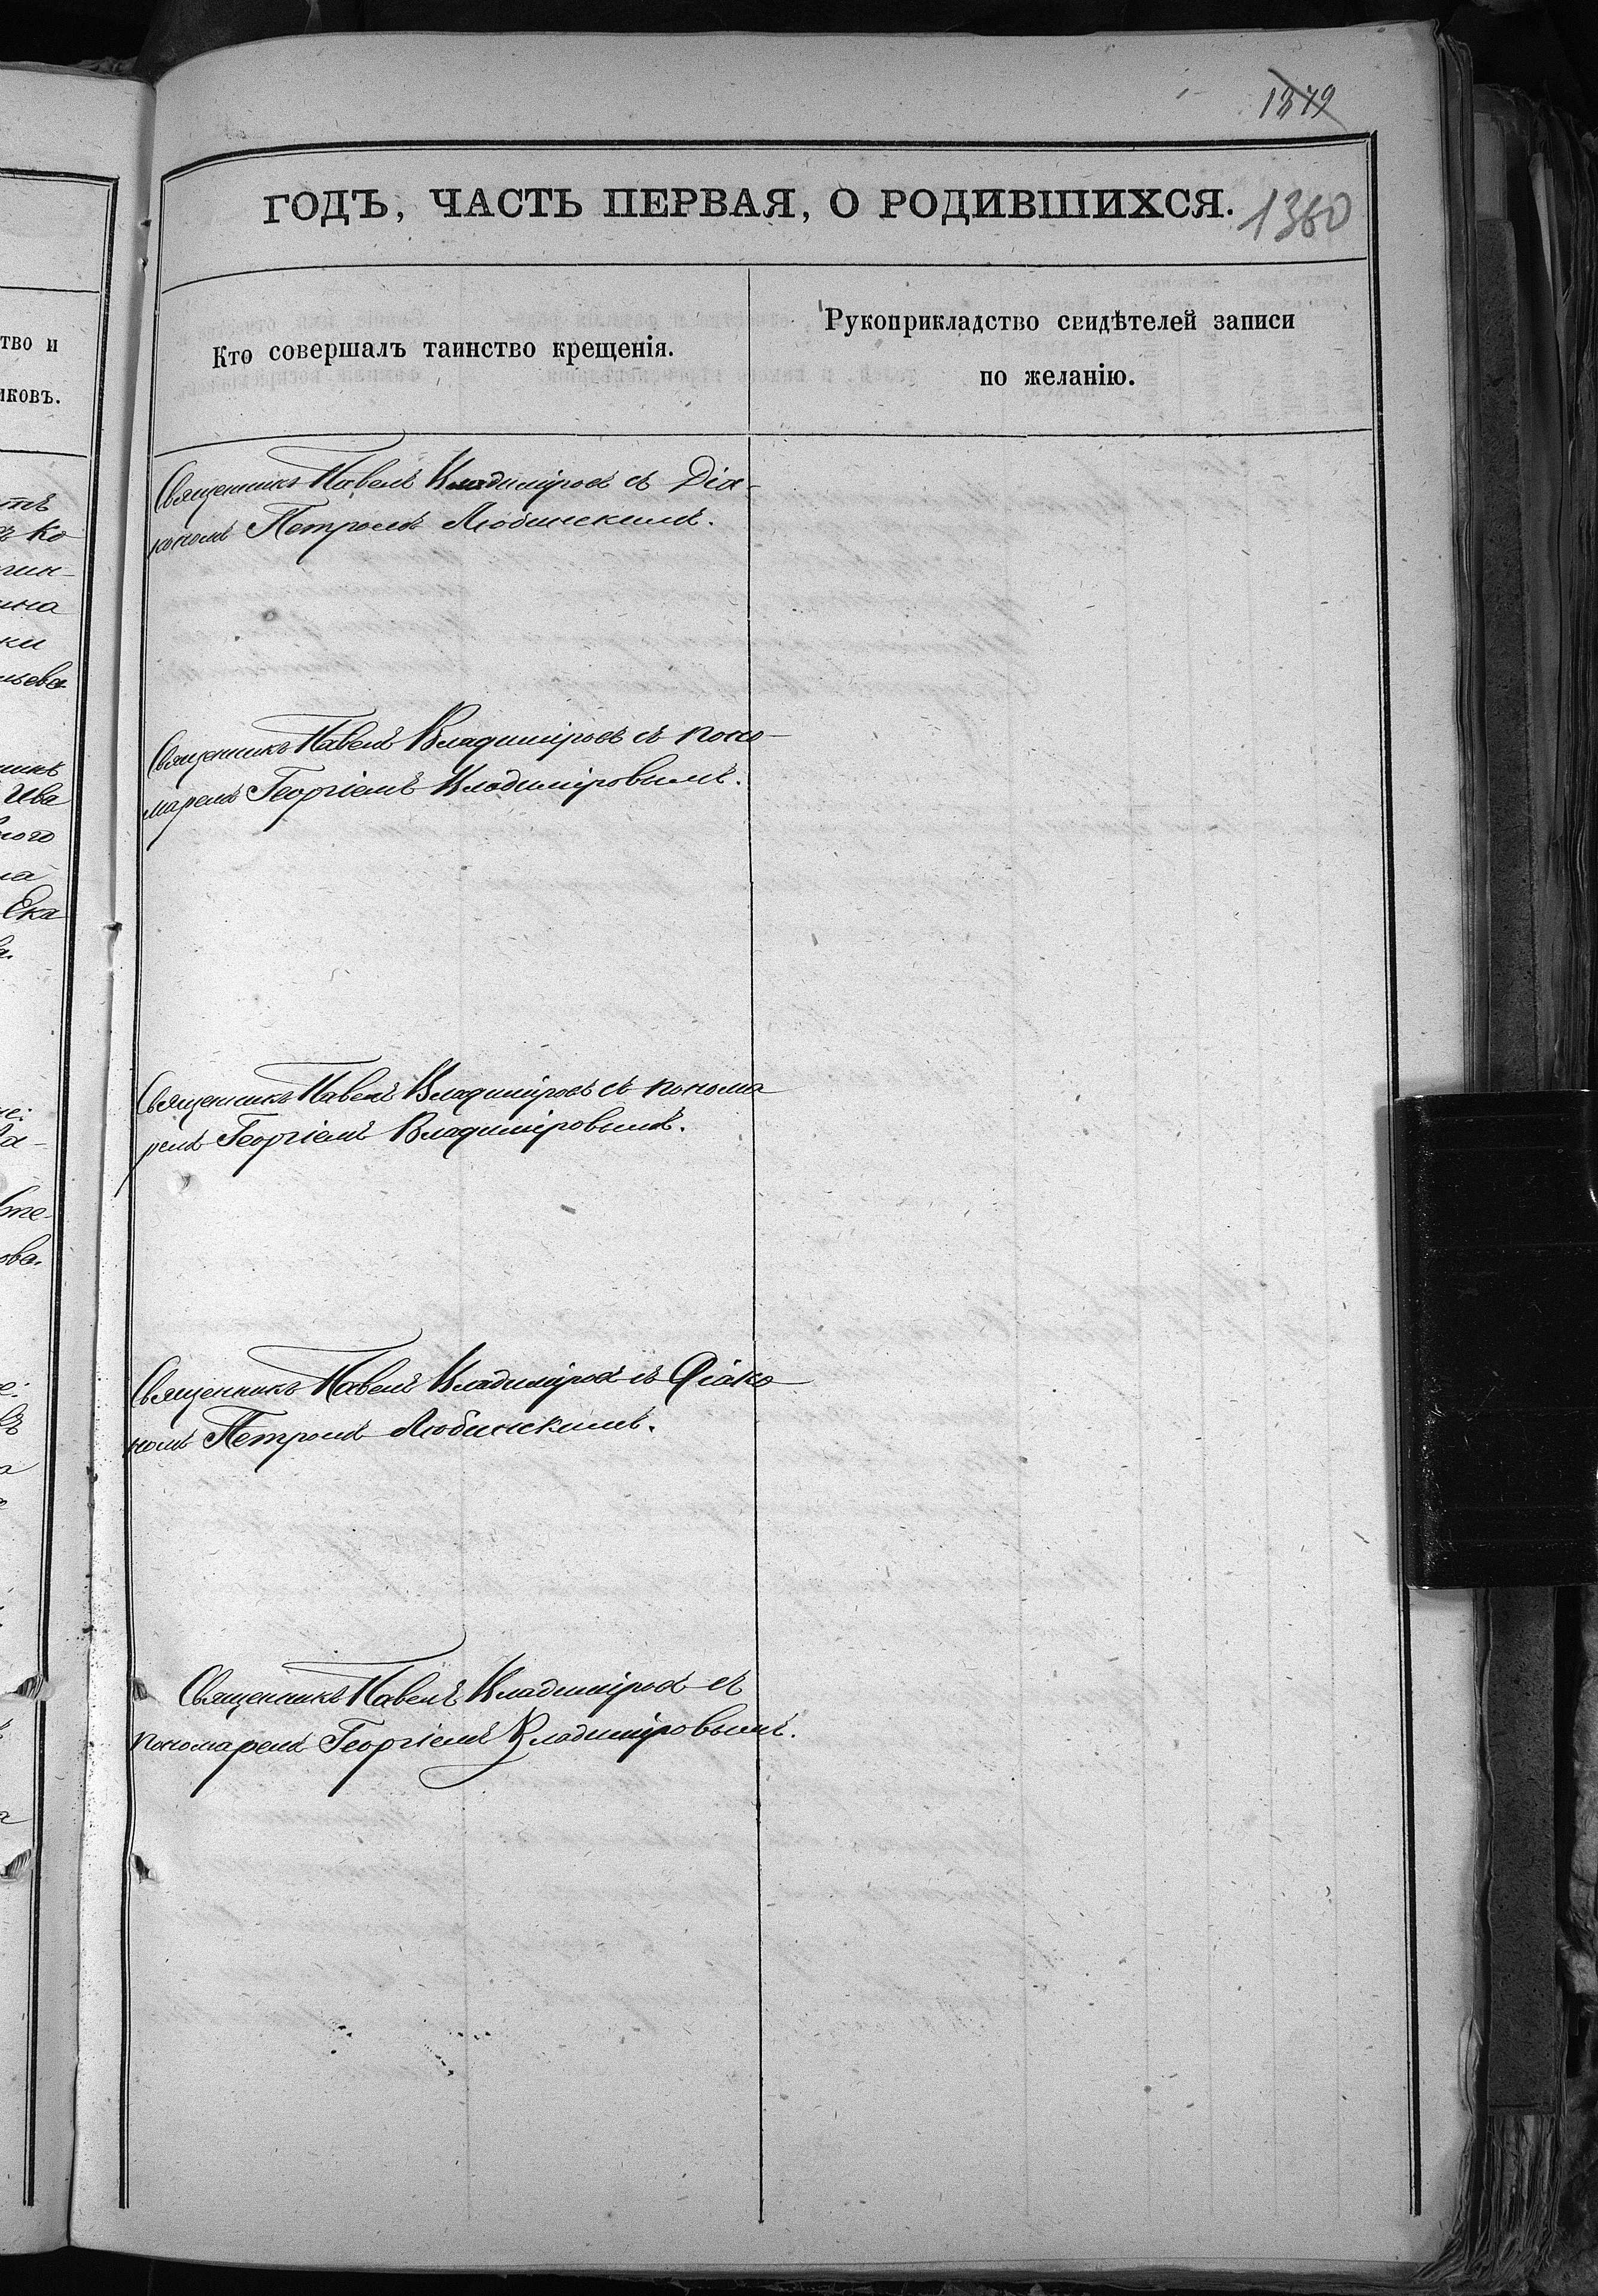 1379
ГОДЪ, ЧАСТЬ ПЕРВАЯ, О РОДИВШИХСЯ.
1360
Кто совершалъ таинство крещенія.
Рукоприкладство свидѣтелей записи
по желанію.
Священникъ Павелъ Владиміровъ съ Діа-
кономъ Петромъ Любинскимъ.
Священникъ Павелъ Владиміровъ съ поно-
маремъ Георгіемъ Владиміровымъ.
Священникъ Павелъ Владиміровъ съ понома
ремъ Георгіемъ Владиміровымъ.
Священникъ Павелъ Владиміровъ съ Діако
номъ Петромъ Любинскимъ.
Священникъ Павелъ Владиміровъ съ
пономаремъ Георгіемъ Владиміровымъ.
тво и
иковъ.
ко
ина
ки
ьева
Ива
ного
на
Ека
ова.